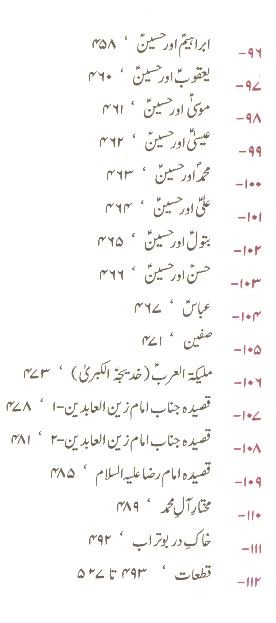 ۹۶- ابراہیمؑ اور حسینؑ ، ۴۵۸
۹۷- یعقوبؑ اور حسینؑ ، ۴۶۰
۹۸- موسیٰؑ اور حسینؑ ، ۴۶۱
۹۹- عیسیٰؑ اور حسینؑ ، ۴۶۲
۱۰۰- محمدؐ اور حسینؑ ، ۴۶۳
۱۰۱- علیؑ اور حسینؑ ، ۴۶۴
۱۰۲- بتولؑ اور حسینؑ ، ۴۶۵
۱۰۳- حسنؑ اور حسینؑ ، ۴۶۶
۱۰۴- عباسؑ ، ۴۶۷
۱۰۵- صفین ، ۴۷۱
۱۰۶- ملیکۃ العربؑ (خدیجۃ الکبریٰ) ، ۴۷۳
۱۰۷- قصیدہ جناب امام زین العابدین-۱ ، ۴۷۸
۱۰۸- قصیدہ جناب امام زین العابدین-۲ ، ۴۸۱
۱۰۹- قصیدہ امام رضا علیہ السلام ، ۴۸۵
۱۱۰- مختارِ آلِ محمد ، ۴۸۹
۱۱۱- خاکِ در بوتراب ، ۴۹۲
۱۱۲- قطعات ، ۴۹۳ تا ۵۳۷